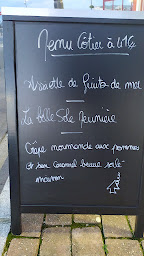 Menu Côtier à 41€
Assiette de fruits de mer
La belle Sole meunière
Crêpe normande aux pommes
et son Caramel beurre salé
maison